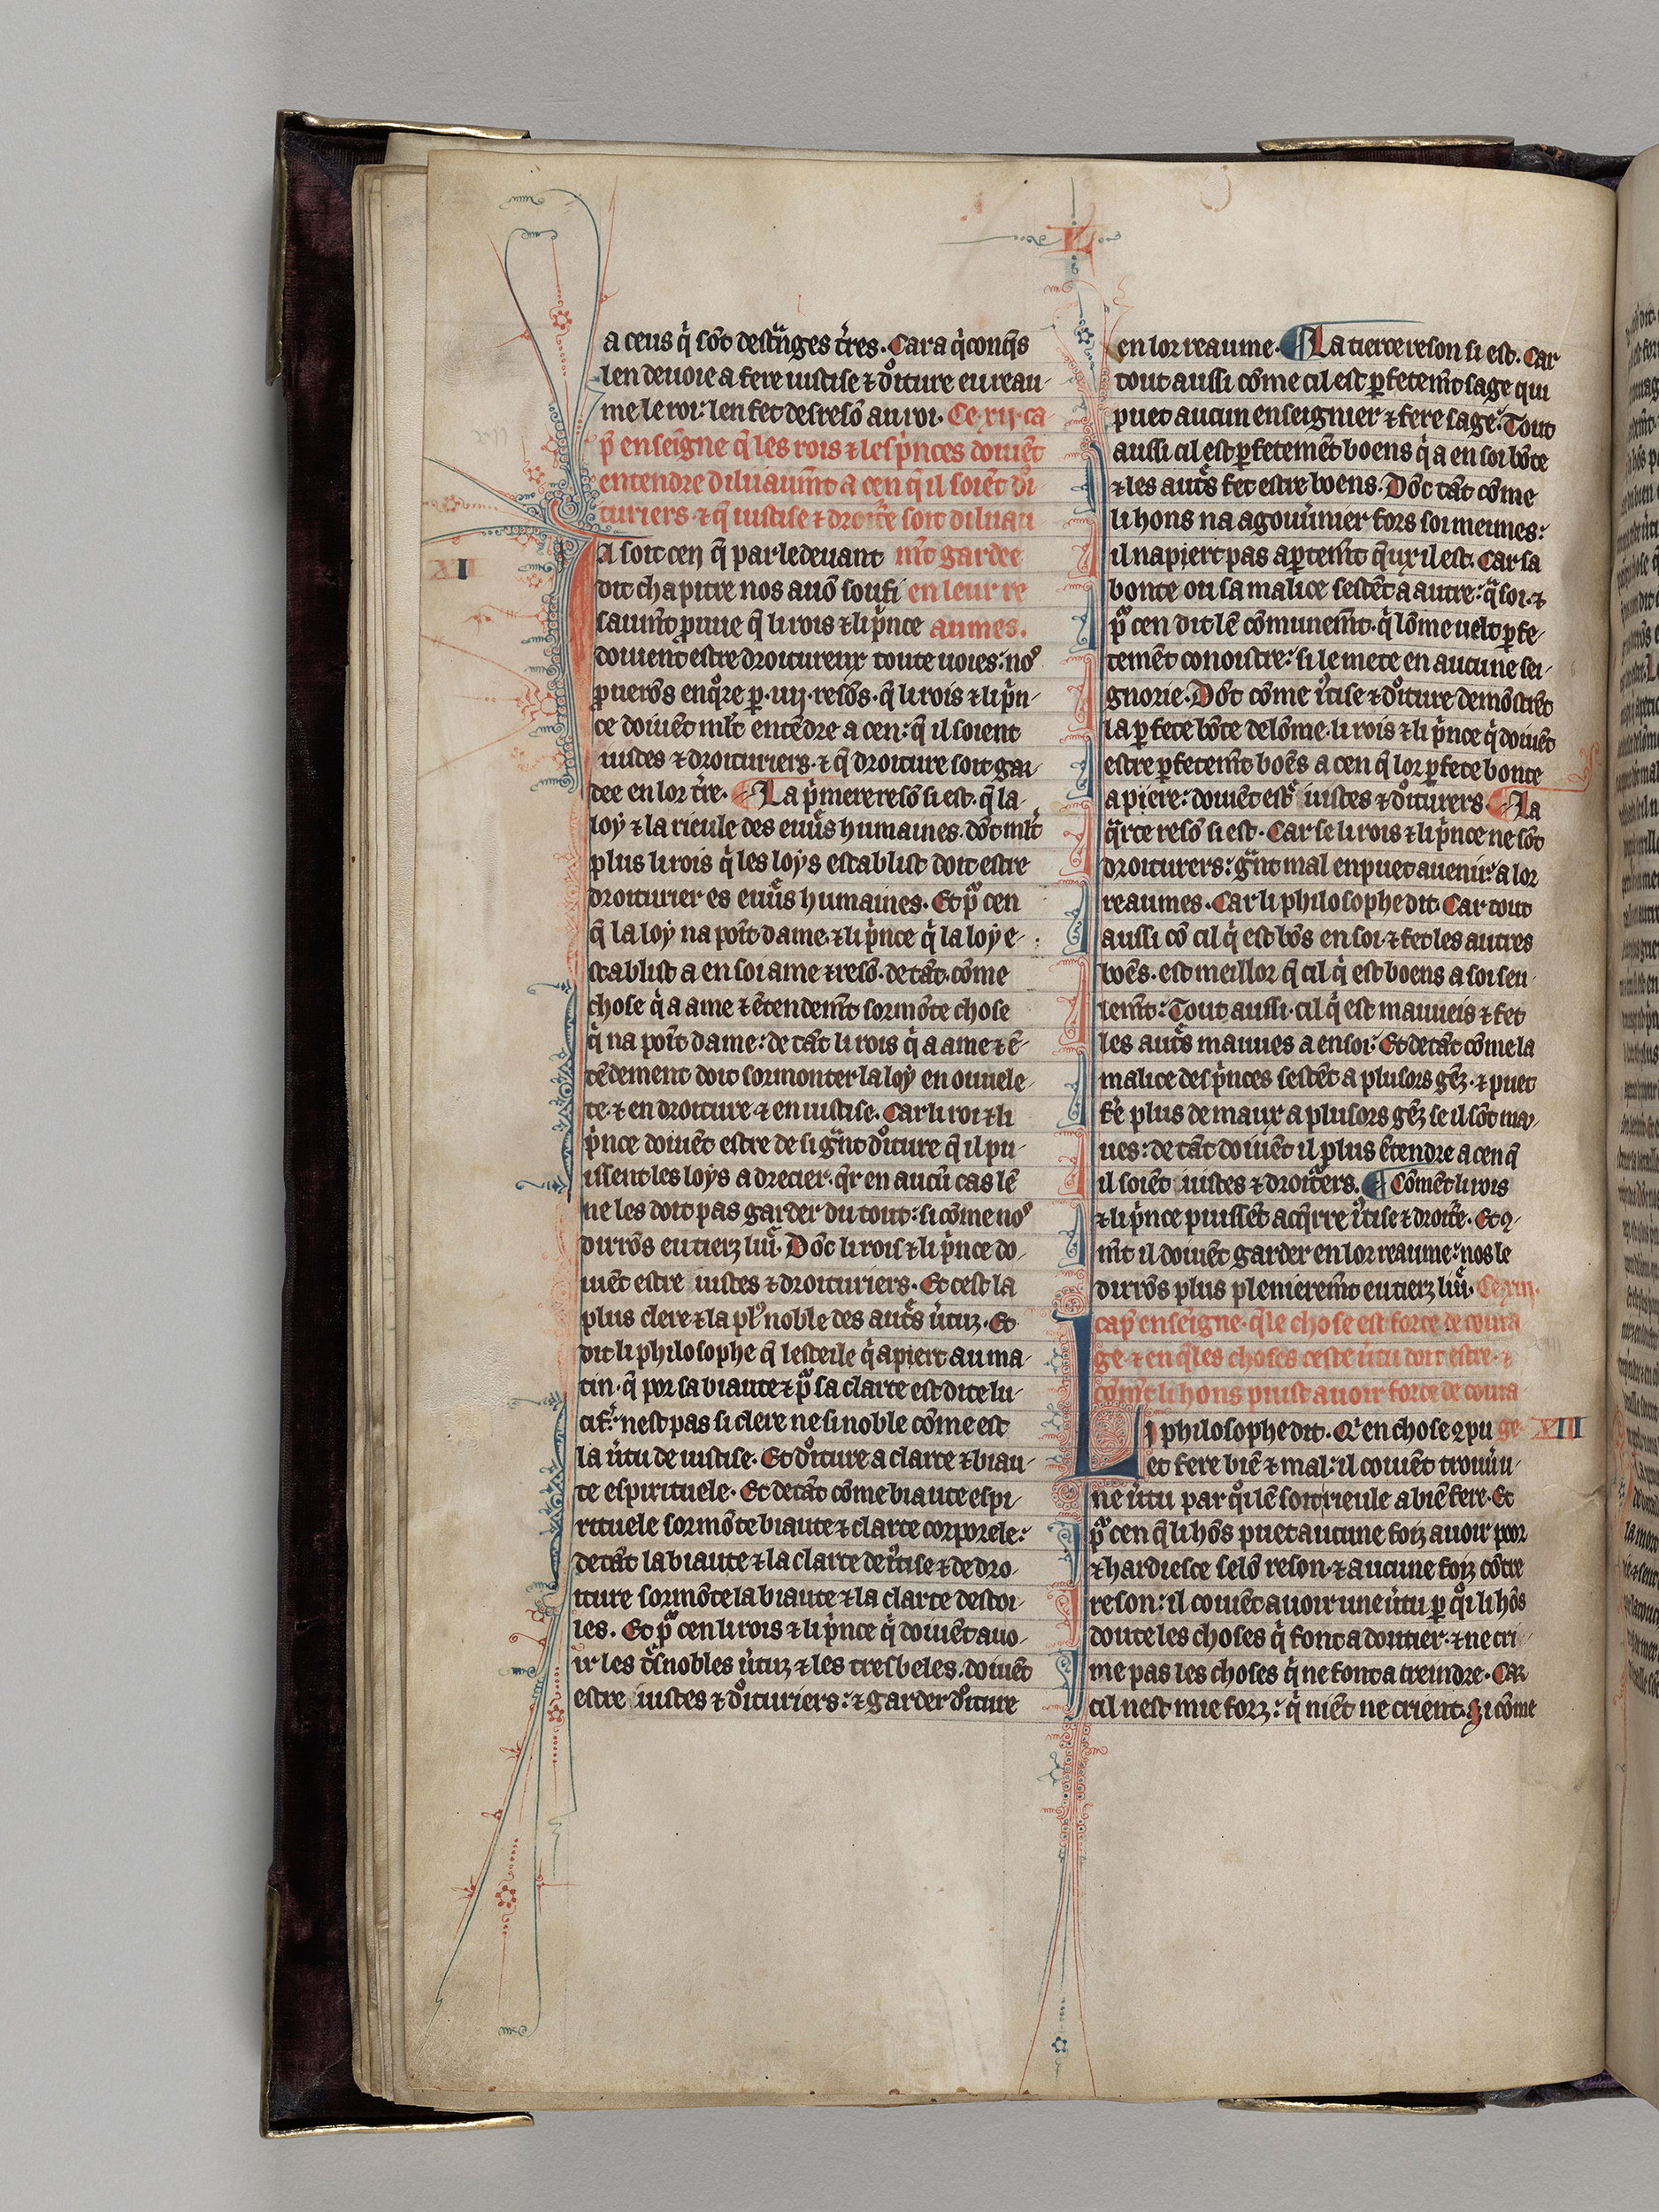 L
a ceus q̍ sōt destᷓnges t̄res. Car a q̍conq̄s
len devoie a fere iustise ⁊ dͦiture eu reau-
me le roi: len fet desresō au roi. Ce xij. ca
p̄ enseīgne q̄ les rois ⁊ les p̍nces doiuēt
entendre diluaum̄t a cen q̄ il soiēt dͦi
turiers ⁊ q̄ iustise ⁊ droitͤe soit diluau
XII
Ia soit cen q̄ par le devant m̄t gardee
dit chapitre nos auō soufi en leur re
saum̄t pruue q̄ li rois ⁊ li p̍nce aumes.
doiuent estre droitureux toute uoies: noꝰ
ꝓuerōs enqͦre ꝑ .iiij. resōs. q̄ li rois ⁊ li p̍n-
ce doiuēt ml̄t entēdre a cen: q̄ il soient
iustes ⁊ droituriers. ⁊ q̄ droiture soit gar-
dee en lor t̄re. La p̍mere resō si est. q̄ la
loy ⁊ la rieule des euuͣs humaines. dōt ml̄t
plus li rois q̍ les loys establist doit estre
droiturier es euuͣs humaines. Et pͦ cen
q̄ la loy na poīt dame. ⁊ li p̍nce q̍ la loy e-
stablist a en soi ame ⁊ resō. de tāt. cōme
chose q̍ a ame ⁊ ētendem̄t sormōte chose
q̍ na poīt dame: de tāt li rois q̍ a ame ⁊ ē-
tēdement doit sormonter la loy en ouuele-
te. ⁊ en droiture ⁊ en iustise. Car li roi ⁊ li
p̍nce doiuēt estre de si gᷓnt dͦiture q̄ il pu-
issent les loys adrecier. qͣr en aucū cas lē
ne les doit pas garder du tout: si cōme noꝰ
dirrōs eu tierz liuͤ. Dōc li rois ⁊ li p̍nce do-
iuēt estre iustes ⁊ droituriers. Et cest la
plus clere ⁊ la plꝰ noble des autͤs u̍tuz. Et
dit li philosophe q̄ lesteile q̍ apiert au ma-
tin. q̄ por sa biaute ⁊ pͦ sa clarte est dite lu-
cifͤ: nest pas si clere ne si noble cōme est
la u̍tu de iustise. Et dͦiture a clarte ⁊ biau-
te espirituele. Et de tāt cōme biaute espi-
rituele sormōte biaute ⁊ clarte corporele:
de tāt la biaute ⁊ la clarte de iͧtise ⁊ de dro-
iture sormōte la biaute ⁊ la clarte destoi-
les. Et pͦ cen li rois ⁊ li p̍nce q̍ doiuēt auo-
ir les tͤs nobles u̍tuz ⁊ les tres beles. doiuēt
estre iustes ⁊ dͦituriers: ⁊ garder dͦiture
en lor reaume. La tierce reson si est. Car
tout aussi cōme cil est ꝑfetem̄t sage qui
puet aucun enseignier ⁊ fere sage: Tout
aussi cil est ꝑfetemēt boens q̍ a en soi bōte
⁊ les autͤs fet estre boens. Dōc tāt cōme
li hons na a gouu̍nier fors soi meimes:
il napiert pas aꝑtem̄t q̄ux il est. Car sa
bonte ou sa malice sestēt a autre: qͣ soi. ⁊
pͦ cen dit lē cōmunem̄t. q̍ lōme uelt ꝑfe-
temēt conoistre: si le mete en aucune sei-
gnorie. Dōt cōme iͧtise ⁊ dͦiture demōstrēt
la ꝑfete bōte de lōme. li rois ⁊ li p̍nce q̍ doiuēt
estre ꝑfetem̄t boēs a cen q̄ lor ꝑfete bonte
apiere: doiuēt estͤ iustes ⁊ dͦiturers. La
qͣrte resō si est. Car se li rois ⁊ li p̍nce ne sōt
droiturers: gᷓnt mal en puet auenir: a lor
reaumes. Car li philosophe dit. Car tout
aussi cō cil q̍ est bōs en soi. ⁊ fet les autres
boēs. est meillor q̄ cil q̍ est boens a soi seu-
lem̄t: Tout aussi. cil q̍ est mauueis ⁊ fet
les autͤs mauues a en soi: Et de tāt cōme la
malice des p̍nces sestēt a plusors gēz. ⁊ puet
fͤe plus de maux a plusors gēz se il sōt mau-
ues: de tāt doiuēt il plus ētendre a cen q̄
il soiēt iustes ⁊ droitͧers. Cōmēt li rois
⁊ li p̍nce puissēt acq̍rre iͧtise ⁊ droitͤe. Et ꝯ-
m̄t il doiuēt garder en lor reaume: nos le
dirrōs plus plenierem̄t eu tierz liuͤ. Ce xiij.
cap̄ enseigne. q̄le chose est force de coura
ge ⁊ en q̄les choses ceste u̍tu doit estre. ⁊
cōm̄t li hons puist auoir force de coura
XIII
Li philosophe dit. Qͤ en chose ꝯ pu ge.
et fere biē ⁊ mal: il couiēt trouu̍ u-
ne u̍tu par qͦi lē soit rieule a biē fere. Et
pͦ cen q̄ li hōs puet aucune foiz auoir poor
⁊ hardiesce selō reson. ⁊ aucune foiz cōtre
reson: il couiēt auoir une u̍tu ꝑ qͦi li hōs
doute les choses q̍ font a doutier. ⁊ ne cri-
me pas les choses q̍ ne font a creindre. Car
cil nest mie forz: q̍ niēt ne crient. Si cōme